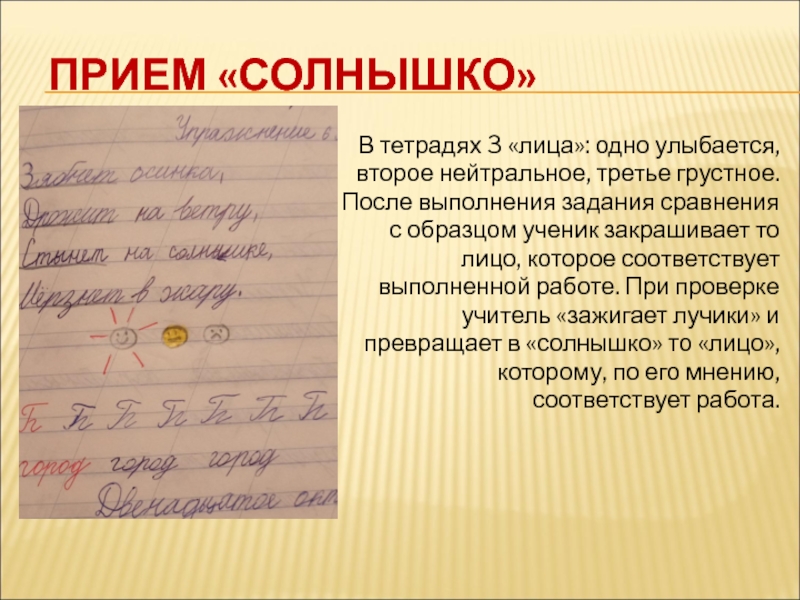 ПРИЕМ «СОЛНЫШКО»
Упражнение 6.
Зябнет осинка,
Дрожит на ветру,
Стынет на солнышке,
Мёрзнет в жару.
Б Б Б Б Б Б Б
город город город
Двенадцатое окт
В тетрадях 3 «лица»: одно улыбается,
второе нейтральное, третье грустное.
После выполнения задания сравнения
с образцом ученик закрашивает то
лицо, которое соответствует
выполненной работе. При проверке
учитель «зажигает лучики» и
превращает в «солнышко» то «лицо»,
которому, по его мнению,
соответствует работа.